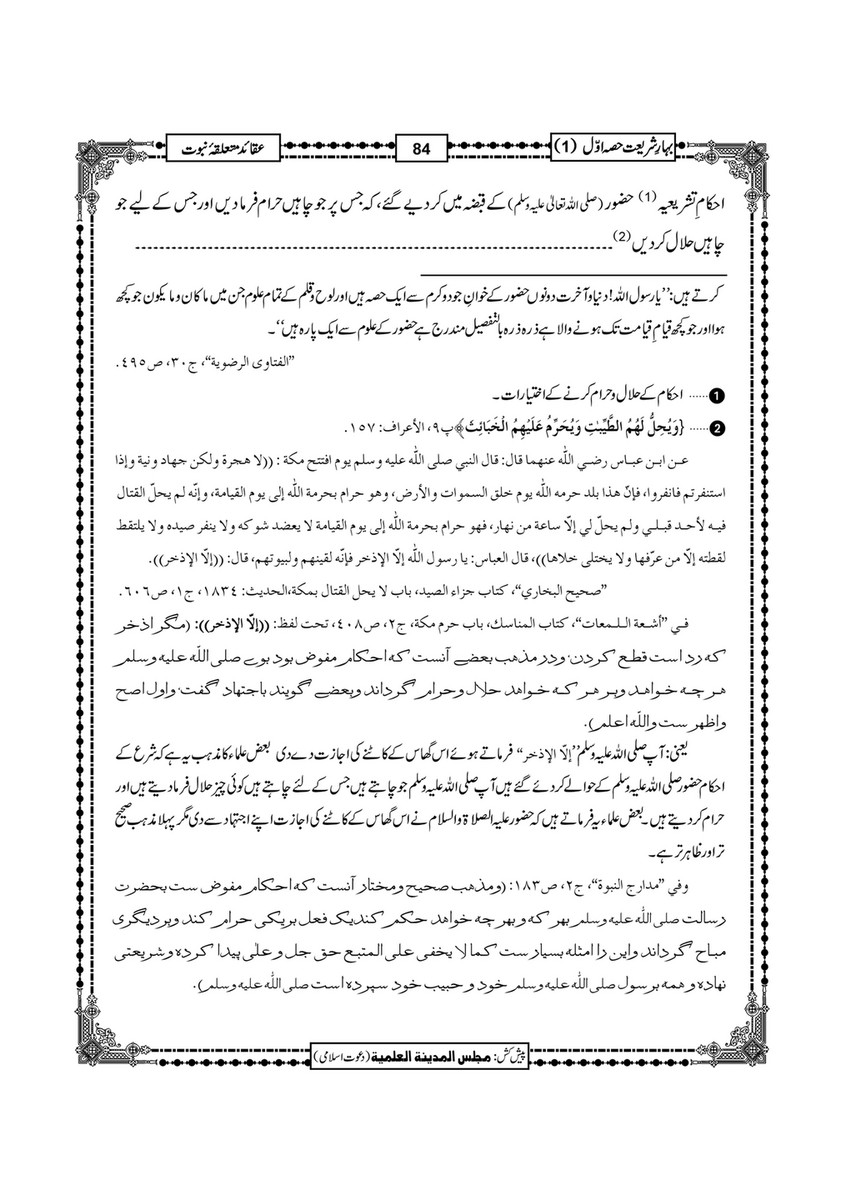 بہارِ شریعت حصہ اوّل (1)
84
عقائد متعلقۂ نبوت
احکامِ تشریعیہ (1) حضور (صلی اللہ تعالیٰ علیہ وسلم) کے قبضہ میں کر دیے گئے، کہ جس پر جو چاہیں حرام فرما دیں اور جس کے لیے جو
چاہیں حلال کر دیں (2)
کرتے ہیں: ’’یا رسول اللہ! دنیا و آخرت دونوں حضور کے خوانِ جود و کرم سے ایک حصہ ہیں اور لوح و قلم کے تمام علوم جن میں ماکان وما یکون جو کچھ
ہوا اور جو کچھ قیامِ قیامت تک ہونے والا ہے ذرہ ذرہ بالتفصیل مندرج ہے حضور کے علوم سے ایک پارہ ہیں‘‘۔
”الفتاوى الرضوية“، ج٣٠، ص٤٩٥.
1 ...... احکام کے حلال و حرام کرنے کے اختیارات۔
2 ...... {وَيُحِلُّ لَهُمُ الطَّيِّبٰتِ وَيُحَرِّمُ عَلَيْهِمُ الْخَبَائِثَ﴾ پ٩، الأعراف: ١٥٧.
عـن ابـن عبـاس رضـي اللّٰه عنهما قال: قال النبي صلى اللّٰه عليه وسلم يوم افتتح مكة : ((لا هجرة ولكن جهاد ونية وإذا
استنفرتم فانفروا، فإنّ هذا بلد حرمه اللّٰه يوم خلق السموات والأرض، وهو حرام بحرمة اللّٰه إلى يوم القيامة، وإنّه لم يحلّ القتال
فيـه لأحـد قبـلـي ولم يحلّ لي إلّا ساعة من نهار، فهو حرام بحرمة اللّٰه إلى يوم القيامة لا يعضد شوكه ولا ينفر صيده ولا يلتقط
لقطته إلّا من عرّفها ولا يختلى خلاها))، قال العباس: يا رسول اللّٰه إلّا الإذخر فإنّه لقينهم ولبيوتهم، قال: ((إلّا الإذخر)).
”صحيح البخاري“، كتاب جزاء الصيد، باب لا يحل القتال بمكة،الحديث: ١٨٣٤، ج١، ص٦٠٦.
فـي ”أشـعة الـلـمعات“، كتاب المناسك، باب حرم مكة، ج٢، ص٤٠٨، تحت لفظ: ((إلّا الإذخر)): (مگر اذخر
که رد است قطع کردن. ودر مذهب بعضے آنست که احکام مفوض بود بوے صلی اللّٰه علیه وسلم
هر چه خواهد وبر هر که خواهد حلال وحرام گرداند وبعضے گویند باجتهاد گفت. واول اصح
واظهر ست واللّٰه اعلم).
یعنی: آپ صلی اللہ علیہ وسلم ’’إلّا الإذخر“ فرماتے ہوئے اس گھاس کے کاٹنے کی اجازت دے دی بعض علماء کا مذہب یہ ہے کہ شرع کے
احکام حضور صلی اللہ علیہ وسلم کے حوالے کر دئے گئے ہیں آپ صلی اللہ علیہ وسلم جو چاہتے ہیں جس کے لئے چاہتے ہیں کوئی چیز حلال فرما دیتے ہیں اور
حرام کر دیتے ہیں۔ بعض علماء یہ فرماتے ہیں کہ حضور علیہ الصلاۃ والسلام نے اس گھاس کے کاٹنے کی اجازت اپنے اجتہاد سے دی مگر پہلا مذہب صحیح
تر اور ظاہر تر ہے۔
وفي ”مدارج النبوة“، ج٢، ص١٨٣: (ومذهب صحیح ومختار آنست که احکام مفوض ست بحضرت
رسالت صلى اللّٰه عليه وسلم بهر که وبهر چه خواهد حکم کند یک فعل بریکی حرام کند وبر دیگری
مباح گرداند واین را امثله بسیار ست کما لا یخفی علی المتبع حق جل وعلی پیدا کرده وشریعتی
نهاده وهمه برسول صلى اللّٰه عليه وسلم خود وحبیب خود سپرده است صلى اللّٰه عليه وسلم).
پیش کش: مجلس المدينة العلمية (دعوت اسلامی)